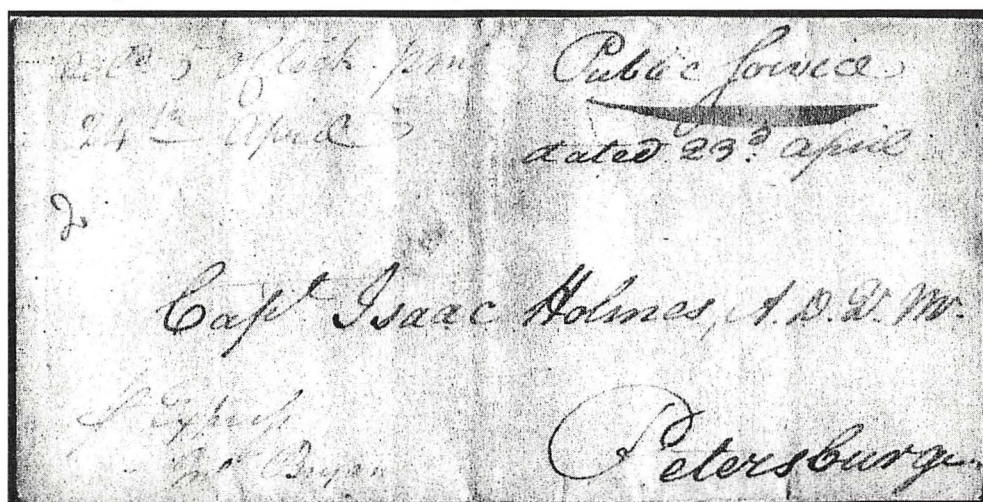 5 oClock pm
24th April
Public Service
dated 23d April
Capt Isaac Holmes, A. D. Q. M.
Petersburg
Express
Mr Bryan